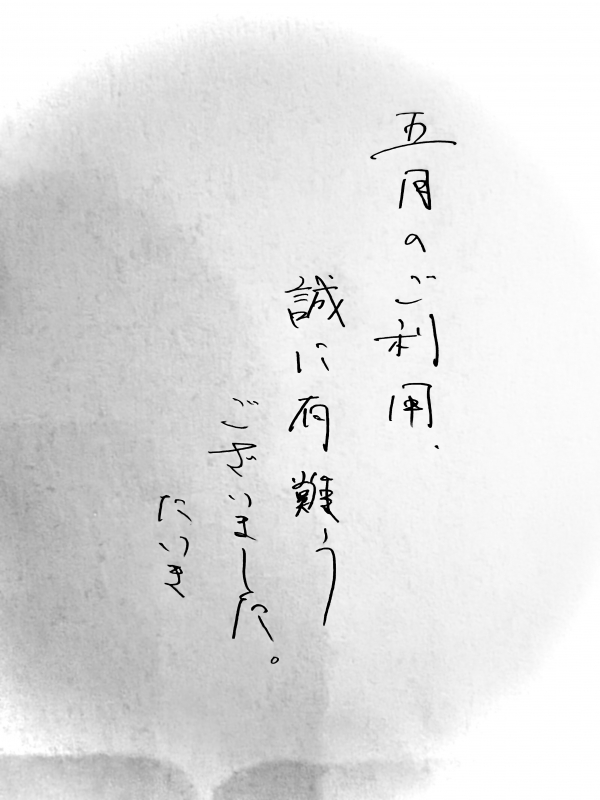 五月のご利用、
誠に有難う
ございました。
たいき